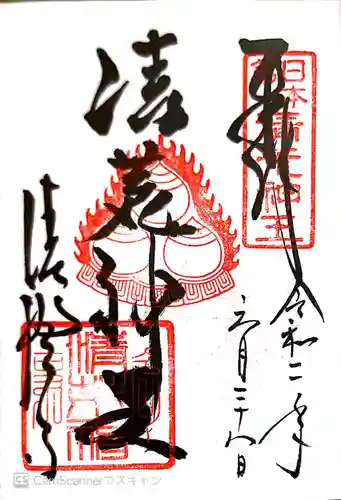 奉拝
日本
令和二年
六月二十八日
清荒神王
清澄寺
CS CamScannerでスキャン